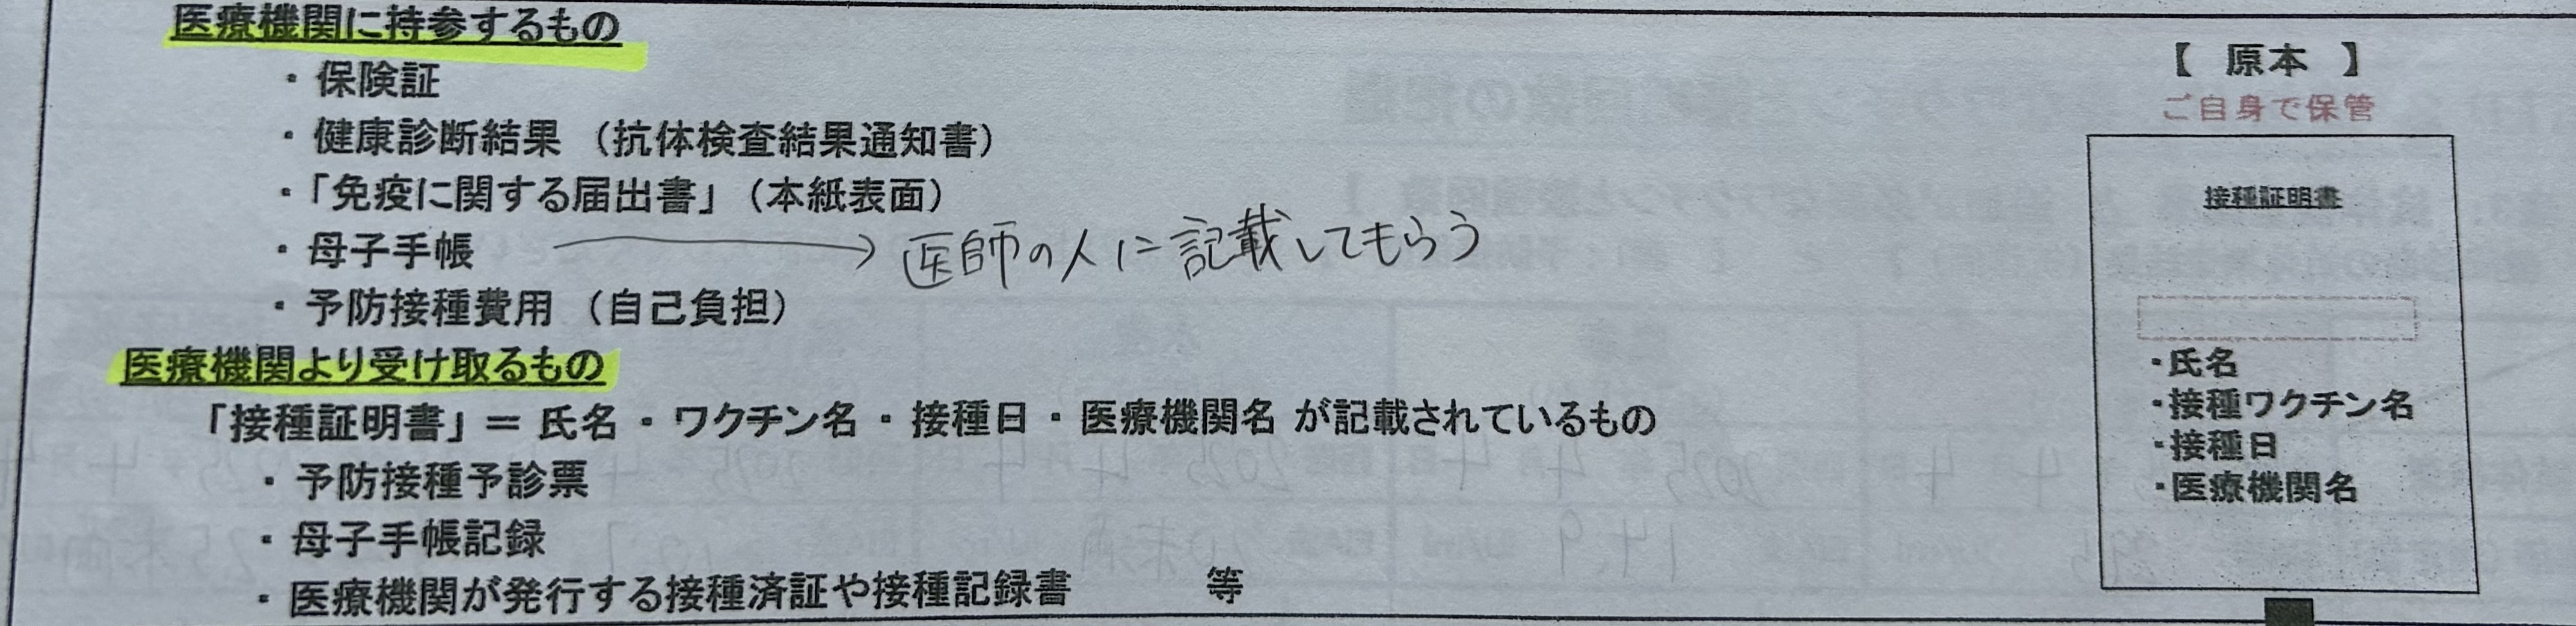 医療機関に持参するもの
・保険証
・健康診断結果（抗体検査結果通知書）
・「免疫に関する届出書」（本紙表面）
・母子手帳 → 医師の人に記載してもらう
・予防接種費用（自己負担）
医療機関より受け取るもの
「接種証明書」＝ 氏名 ・ ワクチン名 ・ 接種日 ・ 医療機関名 が記載されているもの
・予防接種予診票
・母子手帳記録
・医療機関が発行する接種済証や接種記録書　等
【 原本 】
ご自身で保管
接種証明書
・氏名
・接種ワクチン名
・接種日
・医療機関名